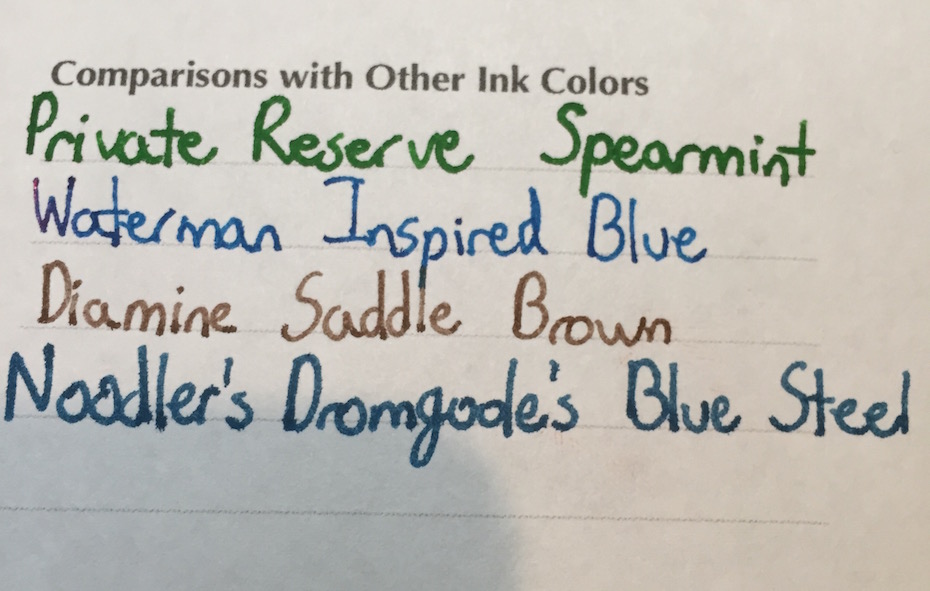 Comparisons with Other Ink Colors
Private Reserve Spearmint
Waterman Inspired Blue
Diamine Saddle Brown
Noodler's Dromgoole's Blue Steel